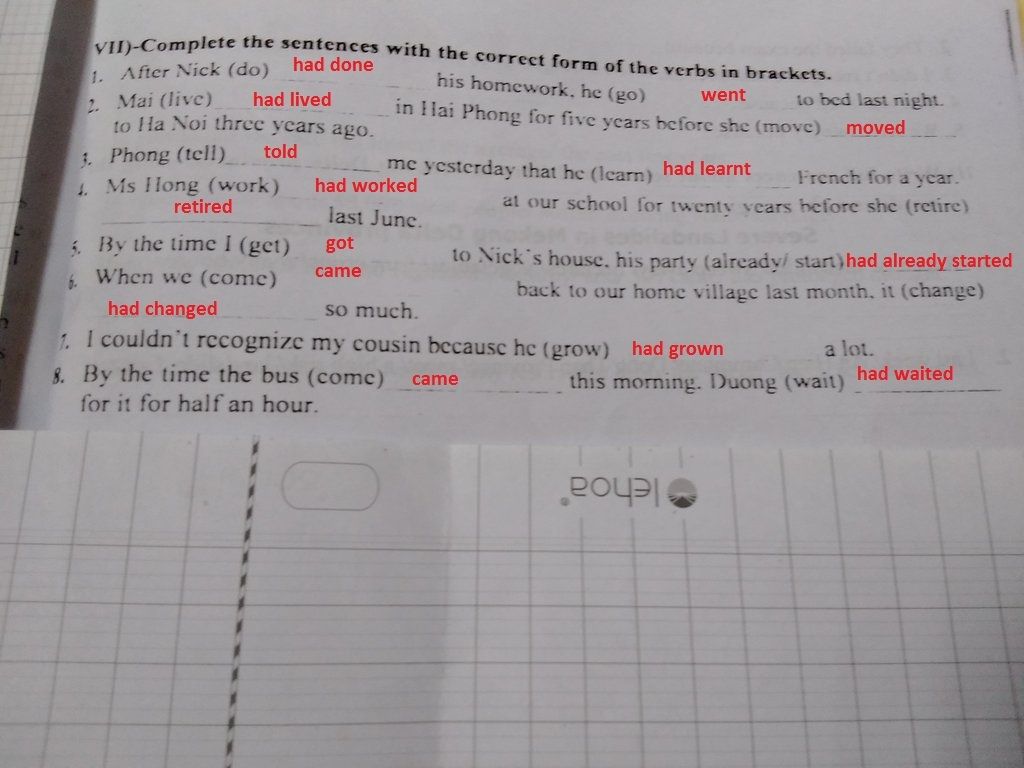 VII)-Complete the sentences with the correct form of the verbs in brackets.
1. After Nick (do) had done his homework, he (go) went to bed last night.
2. Mai (live) had lived in Hai Phong for five years before she (move) moved
to Ha Noi three years ago.
3. Phong (tell) told me yesterday that he (learn) had learnt French for a year.
4. Ms Hong (work) had worked at our school for twenty years before she (retire)
retired last June.
5. By the time I (get) got to Nick's house, his party (already/ start) had already started
6. When we (come) came back to our home village last month, it (change)
had changed so much.
7. I couldn't recognize my cousin because he (grow) had grown a lot.
8. By the time the bus (come) came this morning. Duong (wait) had waited
for it for half an hour.
lehoa